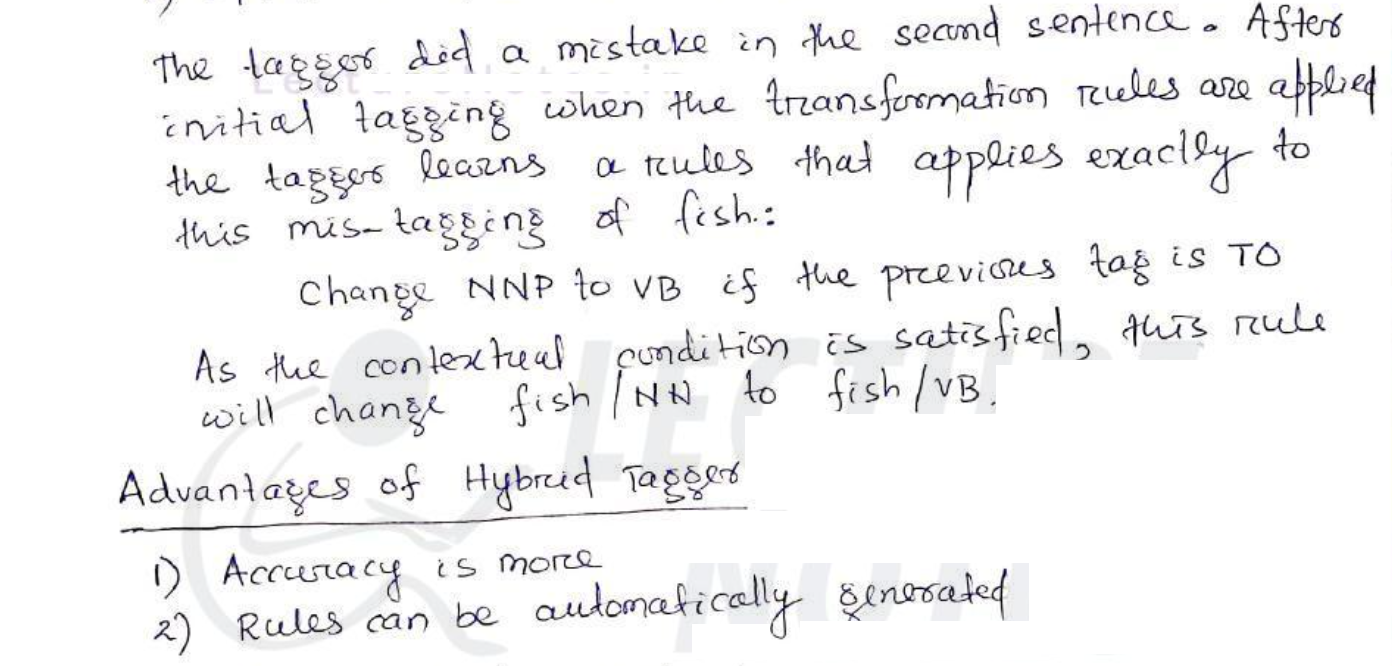 The tagger did a mistake in the second sentence. After
initial tagging when the transformation rules are applied
the tagger learns a rules that applies exactly to
this mis-tagging of fish:
Change NNP to VB if the previous tag is TO
As the contextual condition is satisfied, this rule
will change fish/NN to fish/VB.
Advantages of Hybrid Tagger
1) Accuracy is more
2) Rules can be automatically generated